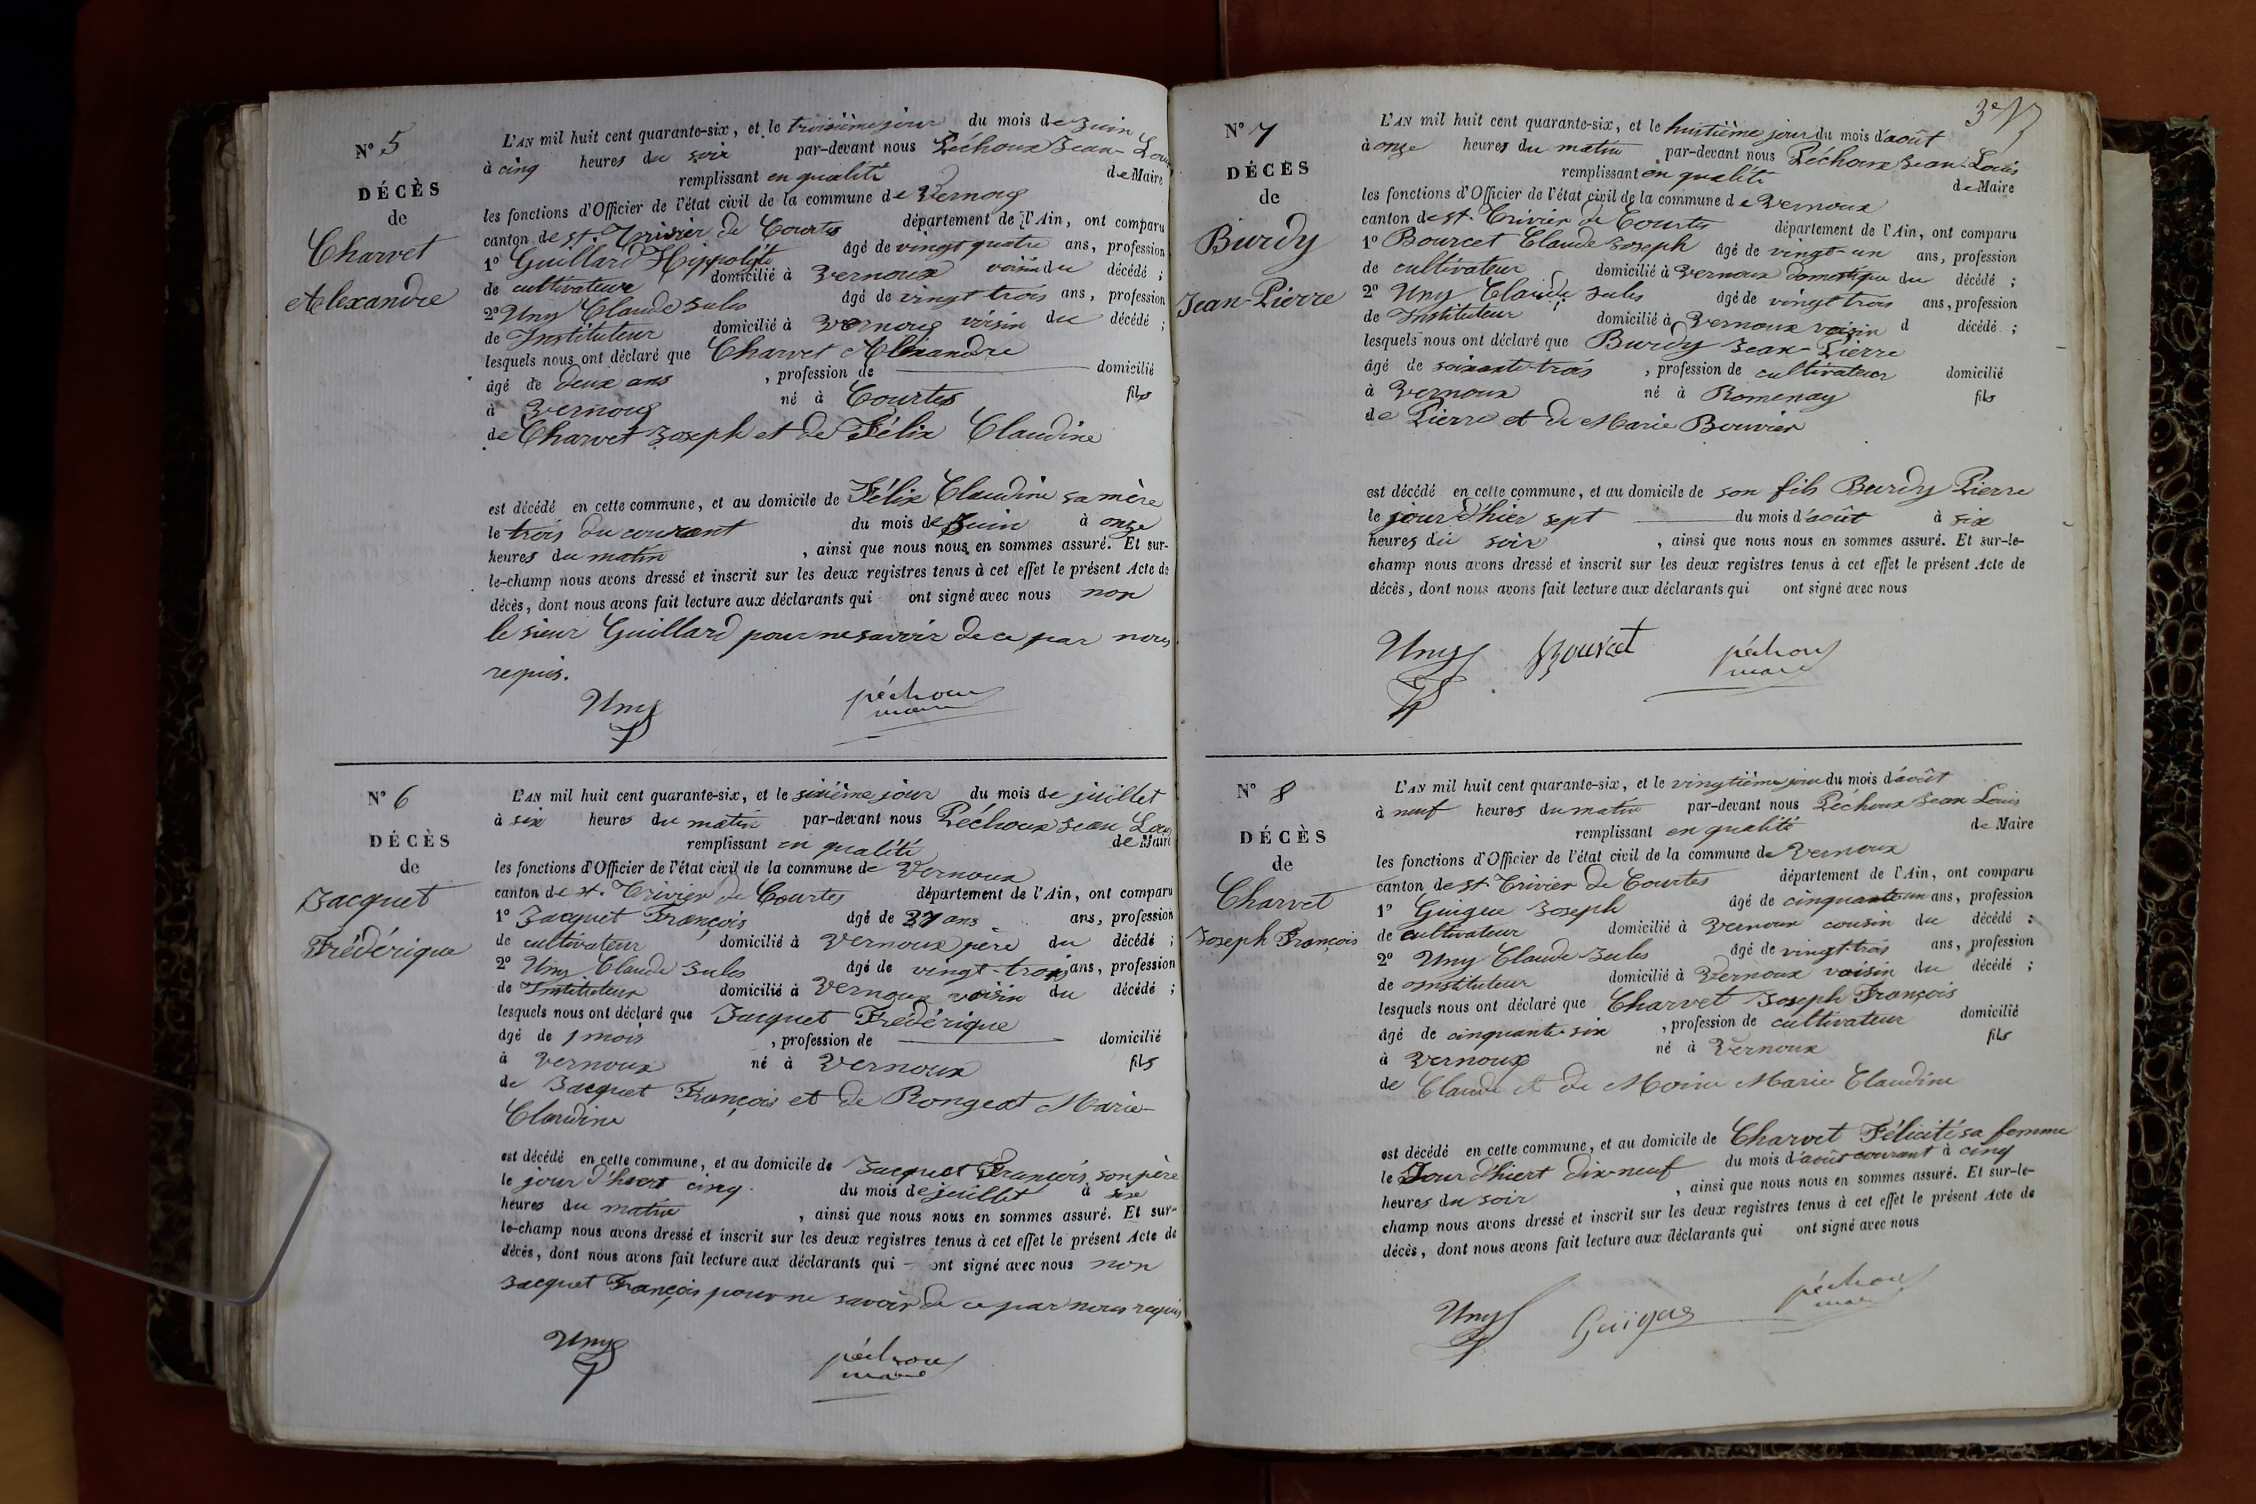 N° 5
DÉCÈS
de
Charvet
Alexandre
L'AN mil huit cent quarante-six, et le troisième jour du mois de Juin
à cinq heures du soir par-devant nous Péchoux Jean-Louis
remplissant en qualité de Maire
les fonctions d'Officier de l'état civil de la commune de Vernoux
canton de St. Trivier de Courtes département de l'Ain, ont comparu
1° Guillard Hippolite âgé de vingt quatre ans, profession
de cultivateur domicilié à Vernoux voisin du décédé ;
2° Uny Claude Jules âgé de vingt trois ans, profession
de Instituteur domicilié à Vernoux voisin du décédé ;
lesquels nous ont déclaré que Charvet Alexandre
âgé de deux ans , profession de domicilié
à Vernoux né à Courtes fils
de Charvet Joseph et de Félix Claudine
est décédé en cette commune, et au domicile de Félix Claudine sa mère
le trois du courant du mois de Juin à onze
heures du matin , ainsi que nous nous en sommes assuré. Et sur-
le-champ nous avons dressé et inscrit sur les deux registres tenus à cet effet le présent Acte de
décès, dont nous avons fait lecture aux déclarants qui ont signé avec nous non
le sieur Guillard pour ne savoir de ce par nous
requis.
Uny péchoux
maire
N° 6
DÉCÈS
de
Jacquet
Frédérique
L'AN mil huit cent quarante-six, et le sixième jour du mois de juillet
à six heures du matin par-devant nous Péchoux Jean Louis
remplissant en qualité de Maire
les fonctions d'Officier de l'état civil de la commune de Vernoux
canton de St. Trivier de Courtes département de l'Ain, ont comparu
1° Jacquet François âgé de 37 ans ans, profession
de cultivateur domicilié à Vernoux père du décédé ;
2° Uny Claude Jules âgé de vingt-trois ans, profession
de Instituteur domicilié à Vernoux voisin du décédé ;
lesquels nous ont déclaré que Jacquet Frédérique
âgé de 1 mois , profession de domicilié
à Vernoux né à Vernoux fils
de Jacquet François et de Rongeat Marie-
Claudine
est décédé en cette commune, et au domicile de Jacquet François son père
le jour d'hiert cinq du mois de juillet à
heures du matin , ainsi que nous nous en sommes assuré. Et sur-
le-champ nous avons dressé et inscrit sur les deux registres tenus à cet effet le présent Acte de
décès, dont nous avons fait lecture aux déclarants qui ont signé avec nous non
Jacquet François pour ne savoir de ce par nous requis
Uny péchoux
maire
3e
N° 7
DÉCÈS
de
Burdy
Jean-Pierre
L'AN mil huit cent quarante-six, et le huitième jour du mois d'août
à onze heures du matin par-devant nous Péchoux Jean-Louis
remplissant en qualité de Maire
les fonctions d'Officier de l'état civil de la commune de Vernoux
canton de St. Trivier de Courtes département de l'Ain, ont comparu
1° Bourcet Claude Joseph âgé de vingt-un ans, profession
de cultivateur domicilié à Vernoux domestique du décédé ;
2° Uny Claude Jules âgé de vingt trois ans, profession
de Instituteur domicilié à Vernoux voisin d décédé ;
lesquels nous ont déclaré que Burdy Jean-Pierre
âgé de soixante-trois , profession de cultivateur domicilié
à Vernoux né à Romenay fils
de Pierre et de Marie Bouvier
est décédé en cette commune, et au domicile de son fils Burdy Pierre
le jour d'hier sept du mois d'août à six
heures du soir , ainsi que nous nous en sommes assuré. Et sur-le-
champ nous avons dressé et inscrit sur les deux registres tenus à cet effet le présent Acte de
décès, dont nous avons fait lecture aux déclarants qui ont signé avec nous
Uny Bourcet péchoux
maire
N° 8
DÉCÈS
de
Charvet
Joseph François
L'AN mil huit cent quarante-six, et le vingtième jour du mois d'août
à neuf heures du matin par-devant nous Péchoux Jean Louis
remplissant en qualité de Maire
les fonctions d'Officier de l'état civil de la commune de Vernoux
canton de St Trivier de Courtes département de l'Ain, ont comparu
1° Guigue Joseph âgé de cinquante un ans, profession
de cultivateur domicilié à Vernoux cousin du décédé ;
2° Uny Claude Jules âgé de vingt-trois ans, profession
de instituteur domicilié à Vernoux voisin du décédé ;
lesquels nous ont déclaré que Charvet Joseph François
âgé de cinquante-six , profession de cultivateur domicilié
à Vernoux né à Vernoux fils
de Claude et de Marie Claudine
est décédé en cette commune, et au domicile de Charvet Félicité sa femme
le Jour d'hiert dix-neuf du mois d'août courant à cinq
heures du soir , ainsi que nous nous en sommes assuré. Et sur-le-
champ nous avons dressé et inscrit sur les deux registres tenus à cet effet le présent Acte de
décès, dont nous avons fait lecture aux déclarants qui ont signé avec nous
Uny Guigue péchoux
maire